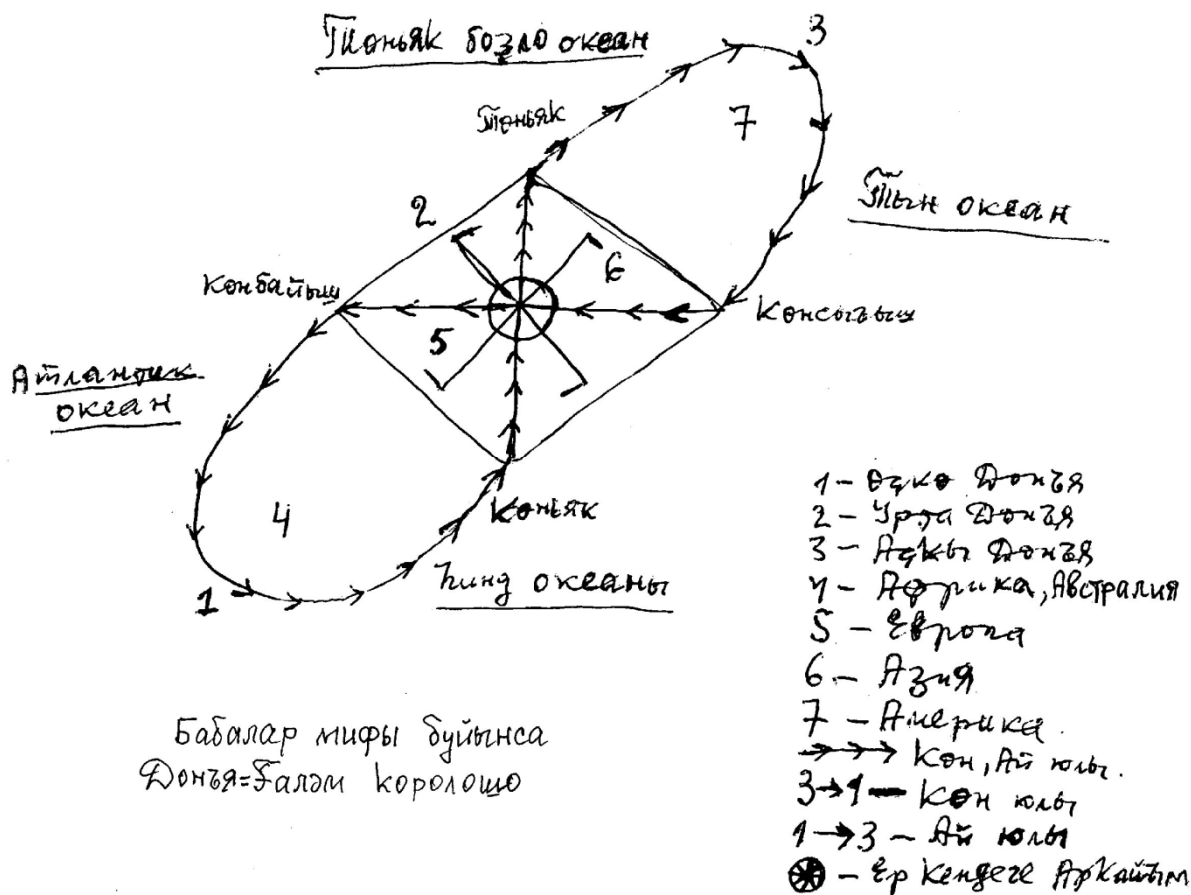 Төньяк бозло океан
3
Төньяк
7
2
Тын океан
6
Көнбайыш
Көнсығыш
5
Атлантик
океан
4
Көньяк
1
Һинд океаны
1 – Өҫкө Донъя
2 – Урта Донъя
3 – Аҫкы Донъя
4 – Африка, Австралия
5 – Европа
6 – Азия
7 – Америка
Көн, Ай юлы.
3→1 – Көн юлы
1→3 – Ай юлы
– Ер кендеге Аркайым
Бабалар мифы буйынса
Донъя=Ғаләм королошо